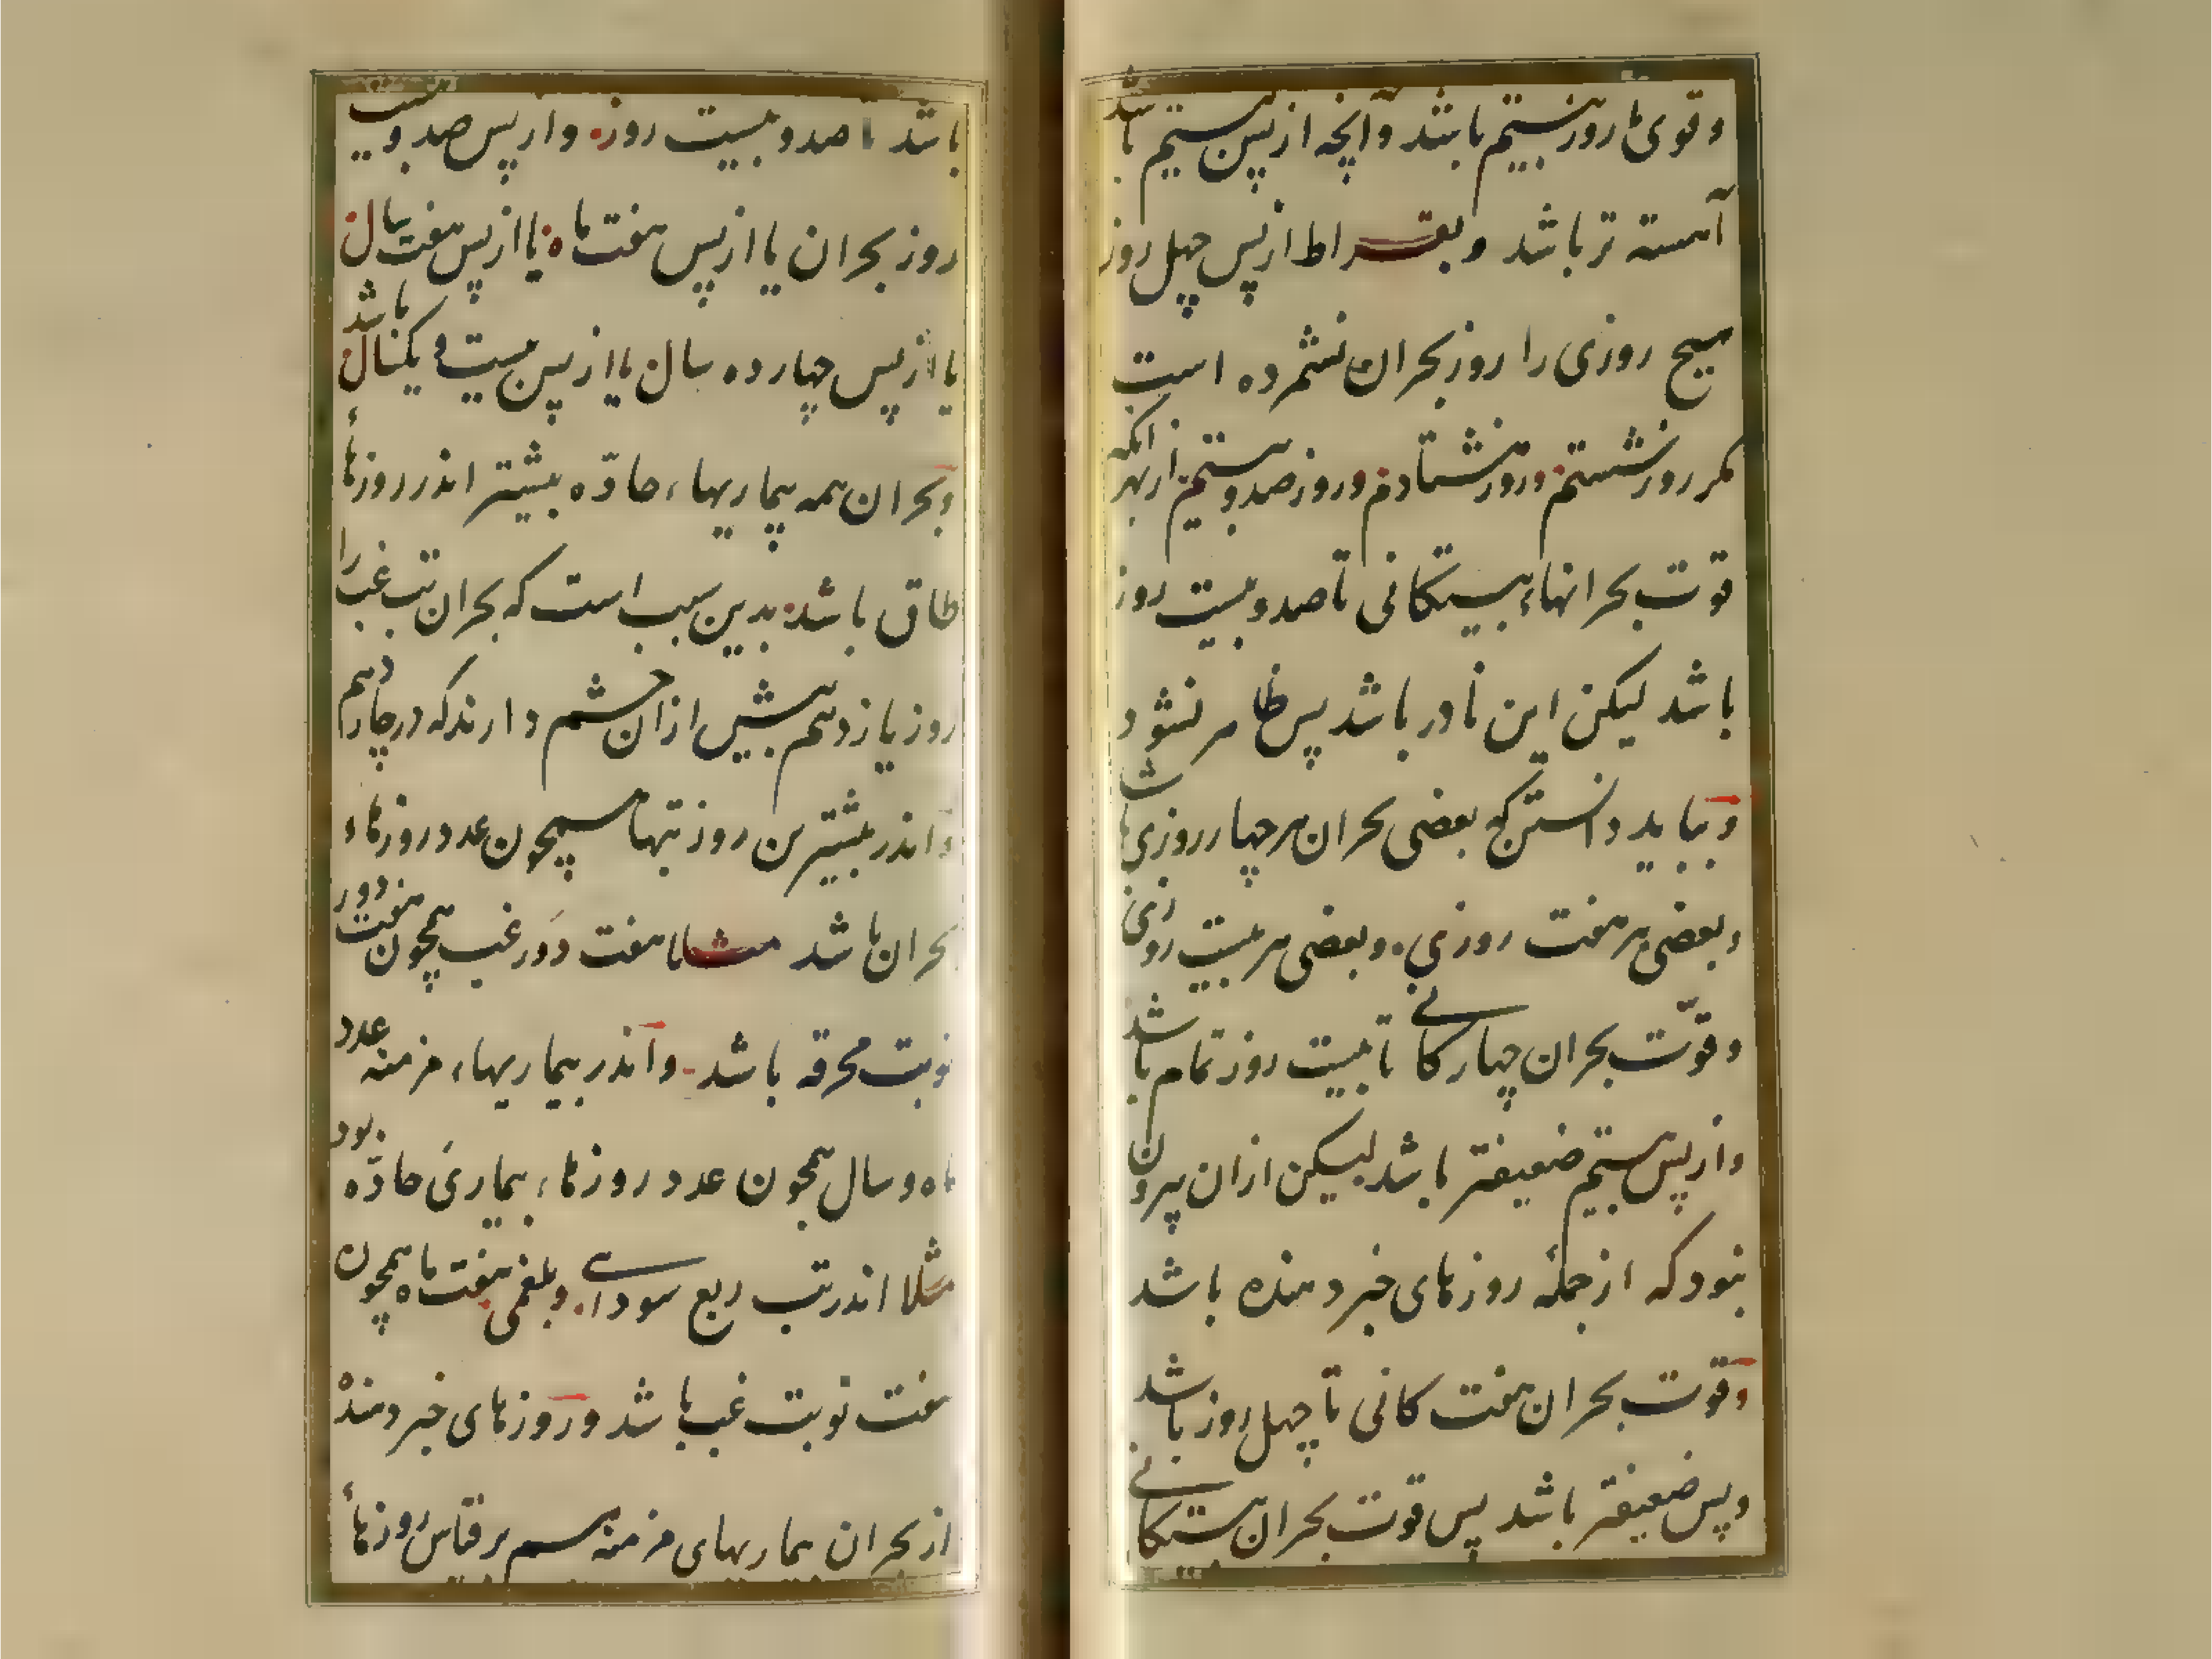 و قوی تا روز بیستم باشد و آنچه از پس بیستم باشد
آهسته تر باشد و بقراط از پس چهل روز
هیچ روزی را روز بحران نشمرده است
مکر روز شستم و روز هشتادم و روز صد و بیستم از بهر انکه
قوت بحرانهاء بیستکانی تا صد و بیست روز
باشد لیکن این نادر باشد پس ظاهر نشود
و بباید دانستن که بعضی بحران هر چهار روزی باشد
و بعضی هر هفت روزی و بعضی هر بیست روزی
و قوّت بحران چهارکانی تا بیست روز تمام باشد
و از پس بیستم ضعیفتر باشد لیکن ازان بیرون
نبود که از جملهٔ روزهای خبر دهنده باشد
و قوت بحران هفت کانی تا چهل روز باشد
و پس ضعیفتر باشد پس قوت بحران بیستکانی
باشد تا صد و بیست روز و از پس صد و بیست
روز بحران یا از پس هفت ماه یا از پس هفت سال
یا از پس چهارده سال یا از پس بیست و یکسال باشد
و بحران همه بیماریهاء حادّه بیشتر اندر روزهاء
طاق باشد بدین سبب است که بحران تب غب را
روز یازدهم بیش ازان چشم دارند که در چهاردهم
و اندر بیشترین روز تبها همچون عدد روزهاء
بحران باشد مثلا هفت دَور غب همچون هفت دور
نوبت محرقه باشد و اندر بیماریهاء مزمنه عدد
ماه و سال همچون عدد روزهاء بیماریَ حادّه بود
مثلا اندر تب ربع سودایی و بلغمی هفت ماه همچون
هفت نوبت غب باشد و روزهای خبر دهنده
از بحران بیماریهای مزمنه هم بر قیاس روزهاء